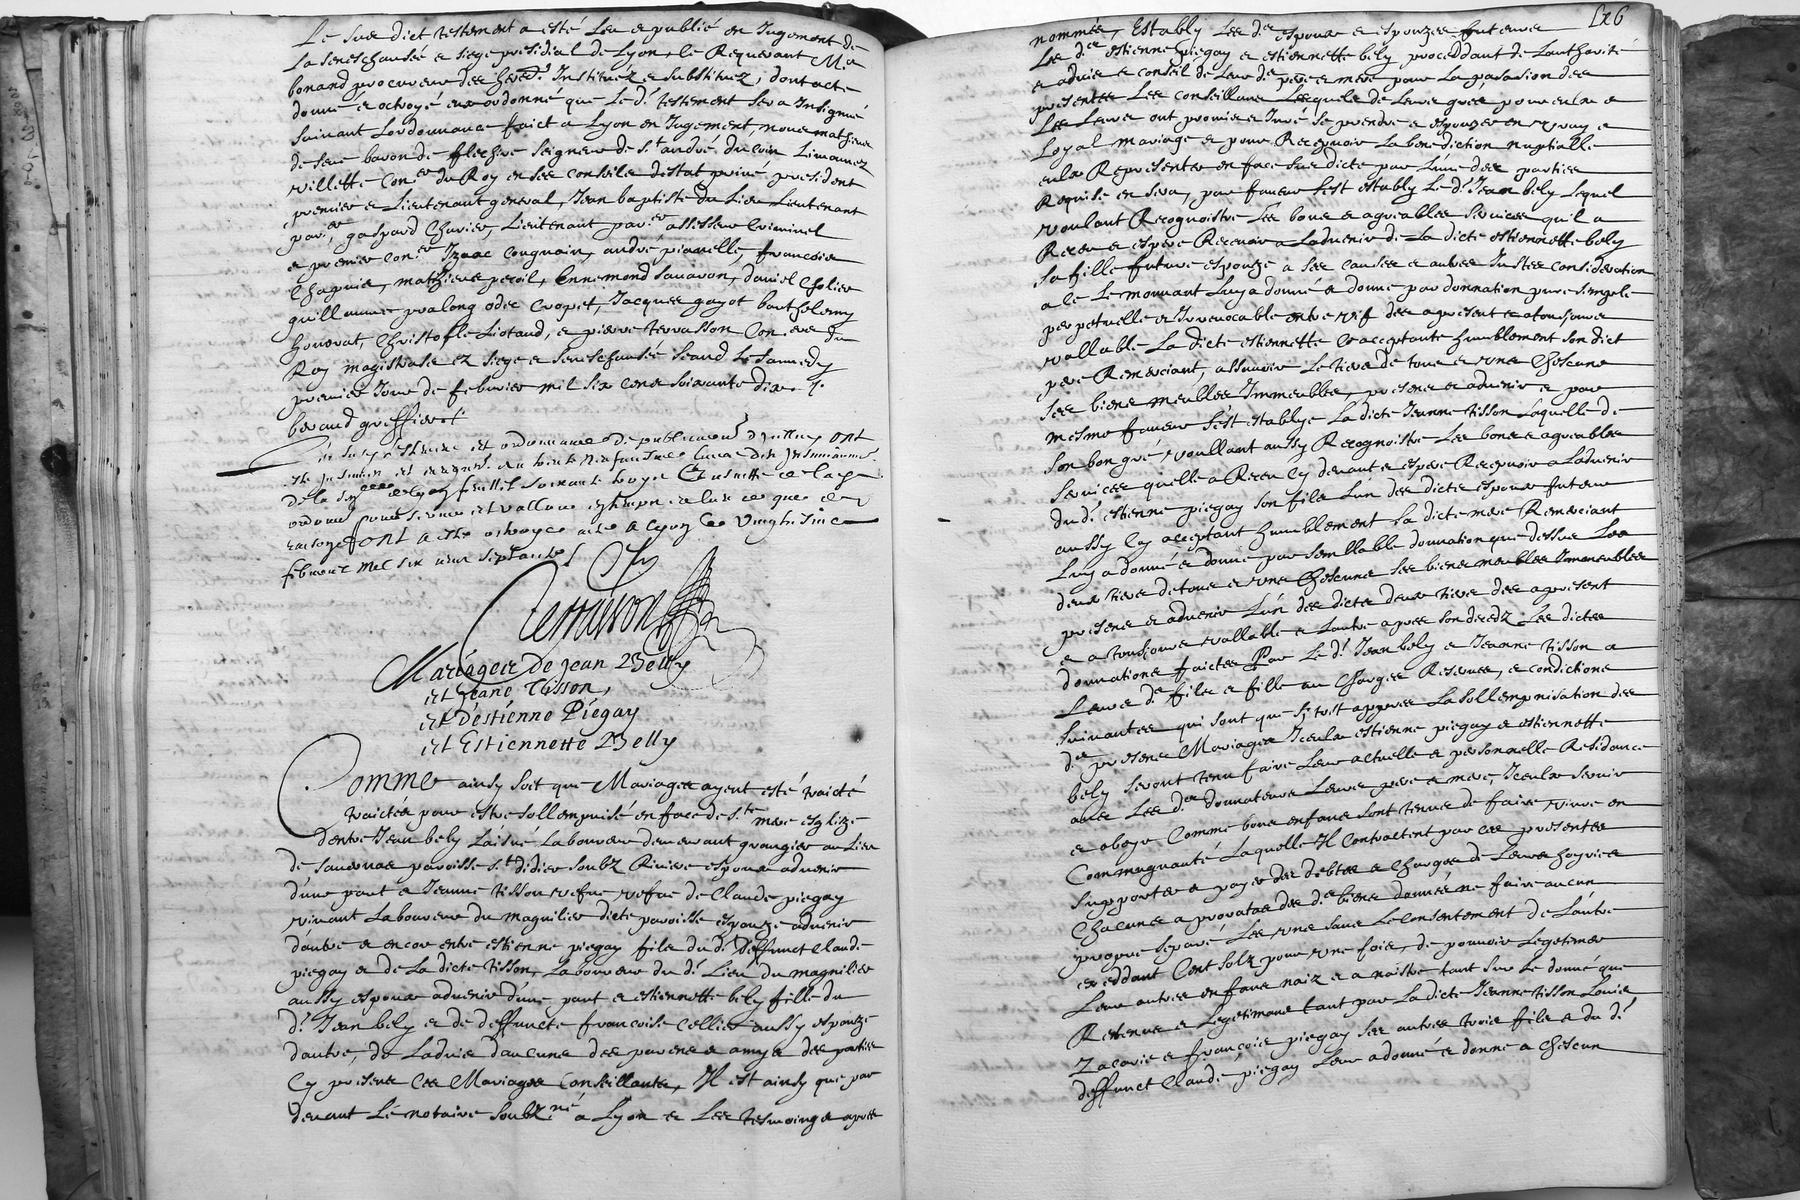 Le sus dict testement a esté leu e publié en Jugement de
La seneschaussée e siege presidial de Lyon, le Requerant Me
bonand procureur des hered. Instituéz e substituéz, dont acte
donné e octroyé e ordonné que le d. testement sera Insigné
suivant Lordonnance faict a Lyon en Jugement, nous mathieu
de seve baron de flechre seigneur de St andré du coin Limonnez
villette Coner du Roy en ses conseils destat prive president
premier e Lieutenant general, Jean baptiste du Lieu Lieutenant
par.er gaspard Charier, Lieutenant par.er assesseur Criminel
e premier con.er Izaac Cougnain, andré pianelle, francois
Chapuis, mathieu peroil, Ennemond savaron, daniel Cholier
guillaume pralong odet Croppet, Jacques gayot barthelemy
honorat, Christofle Liotaud, e pierre terrasson Con.ers du
Roy magistrats ez siege e seneschaussée seand le samedy
premier Jour de febvrier mil six cens soixante dix.
beraud greffier
ordonnance de publication
febvrier mil six cens septante
Terrasson
Mariages de Jean Belly
et Jeane Tisson,
et D'estienne Piegay
et Estiennette Belly
Comme ainsy soit que Mariages ayent esté traicté
traictés pour estre sollempnisé en face de s.te mere esglize
dentre Jean bely Laisné Laboureur demeurant grangier au Lieu
de sauernas paroisse St didier soubz Riviere espoux advenir
dune part e Jeanne tisson vefue vefue de Claude piegay
vivant Laboureur du magnilier dicte paroisse espouze advenir
dautre e encor entre estienne piegay fils du d. deffunct Claude
piegay e de La dicte tisson, Laboureur du d. Lieu du magnilier
aussy espoux advenir d'une part e estiennette bely fille du
d. Jean bely e de deffuncte francoise Cellier aussy espouze
dautre, de Ladvis daucuns des parens e amys des parties
Cy presens Ces Mariages Conseillants, Il est ainsy que par
devant Le notaire soubz.né a Lyon e Les tesmoings apres
nommés, Estably Les d.s espoux e espouzes futeurs
Les d.s estienne piegay e estiennette bely, proceddant de Lauthorité
e advis e conseil de Leurs d.s pere e mere pour La passasion des
presentes Les conseillans Lesquels de Leurs grés pour eux e
Les Leurs ont promis e Juré se prendre e espouzer en vray e
Loyal mariage e pour Recepvoir La benediction nuptialle
eulx Representer en face sus dicte par Lune des parties
Requise en sera, par faveur s'est estably Le d. Jean bely Lequel
voulant Recognoistre Les bons e agreables services qu'il a
Receu e espere Recevoir a Ladvenir de La dicte estiennette bely
sa fille future espouze a ses causes e autres Justes consideration
a ce Le mouvant Luy a donné e donne par donnation pure simple
perpetuelle e Irrevocable entre vif des apresent e a tousjours
vallable La dicte estiennette Ce acceptante humblement son dict
pere Remerciant, assavoir Le tiers de tous e vns Chescuns
ses biens meubles Immeubles, presens e advenir e par
mesme faveur s'est establye La dicte Jeanne tisson Laquelle de
son bon gré voullant aussy Recognoistre Les bons e agreables
services quelle a Receu Cy devant e espere Recepvoir a Ladvenir
du d. estienne piegay son fils Lun des dicts espoux futeurs
aussy Cy acceptant humblement sa dicte mere Remerciant
Luy a donné e donne par semblable donnation que dessus Les
deux tiers de tous e vns Chescuns ses biens meubles Immeubles
presens e advenir Lun des dicts deux tiers des apresent
e a tousjours vallable e Lautre apres son decedz Les dictes
donnations faictes Par Le d. Jean bely e Jeanne tisson a
Leurs d.s fils e fille au Charges Reserves, e condictions
suivantes qui sont que sy tost appres La sollempnisation des
d.s presens Mariages Iceulx estienne piegay e estiennette
bely seront tenu faire Leur actuelle e personnelle Residance
avec Les d.s donnateurs Leurs pere e mere, Iceulx servir
e obeyr Comme bons enfans sont tenus de faire vivre en
Commugnauté Laquelle Il Contractent par ces presentes
supporter e payer des debtes e Charges de Leurs hoyries
Chacuns a proratas des d.s biens donnés ne faire aucun
propre separé Les vns sans Le Consentement de Lautre
exceddant Cent solz pour vne fois, de pouvoir Legetimer
Leur autres enfans naiz e a naistre tant sur Le donné que
Retenus e Legetimans tant par La dicte Jeanne tisson Louis
Zacarie e francois piegay ses autres trois fils e du d.
deffunct Claude piegay Leur a donné e donne a Chescun